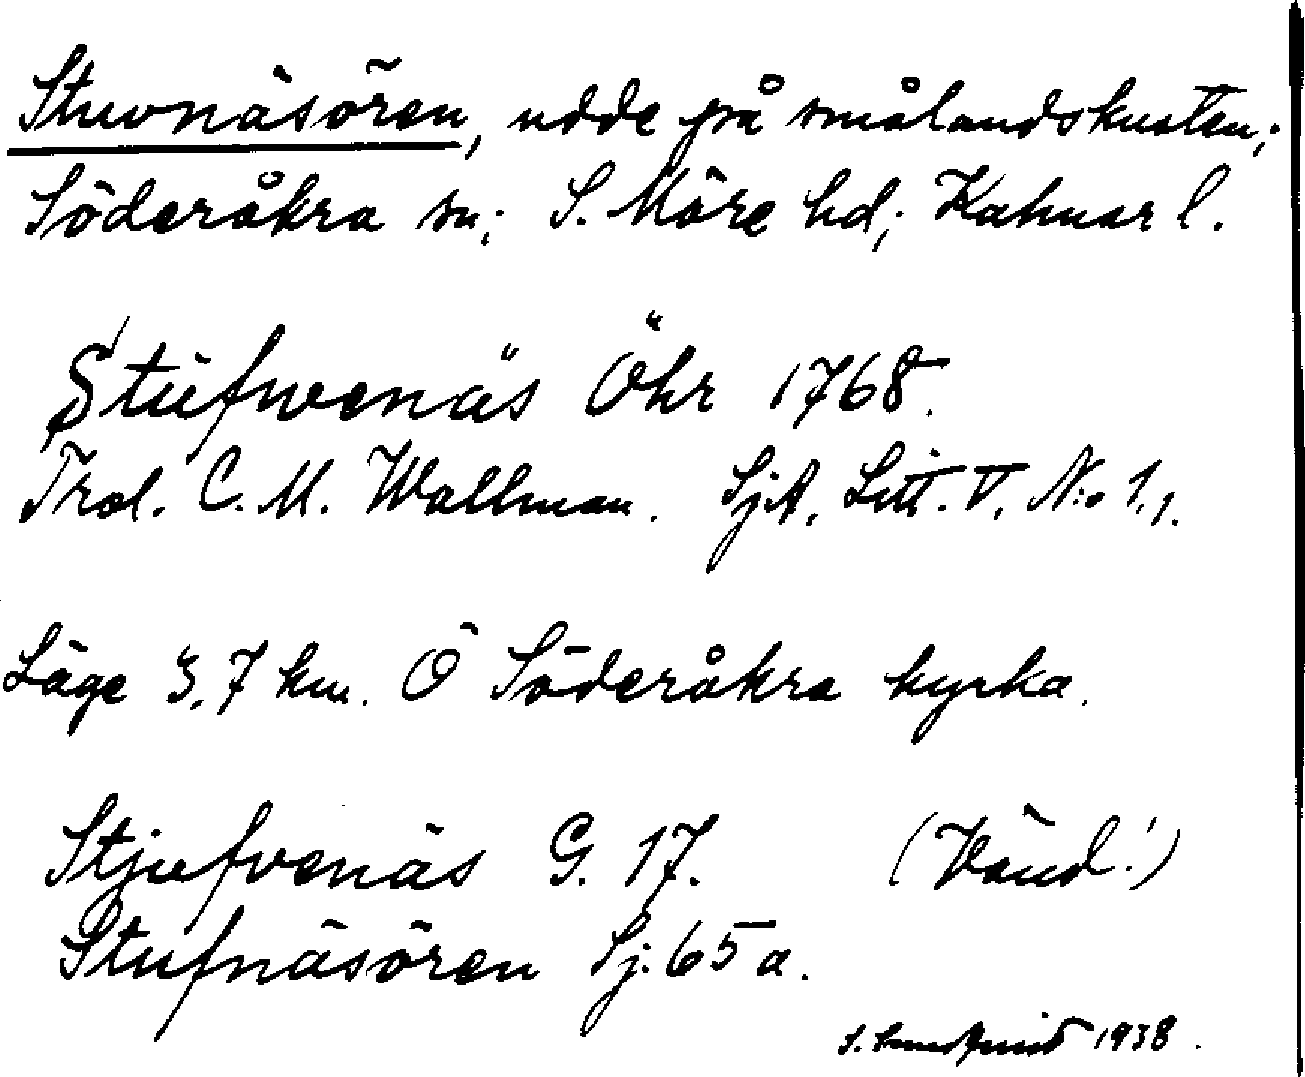 Stuvnäsören, udde på smålandskusten;
Söderåkra sn; S. Möre hd; Kalmar l.
Stüfwenäs Öhr 1768.
Trol. C. M. Wallman. SjA, Litt. V, N:o 1,1.
Läge 3,7 km. Ö Söderåkra kyrka.
Stjufvenäs G. 17. (Vänd!)
Stufnäsören Sj. 65 a.
1938.